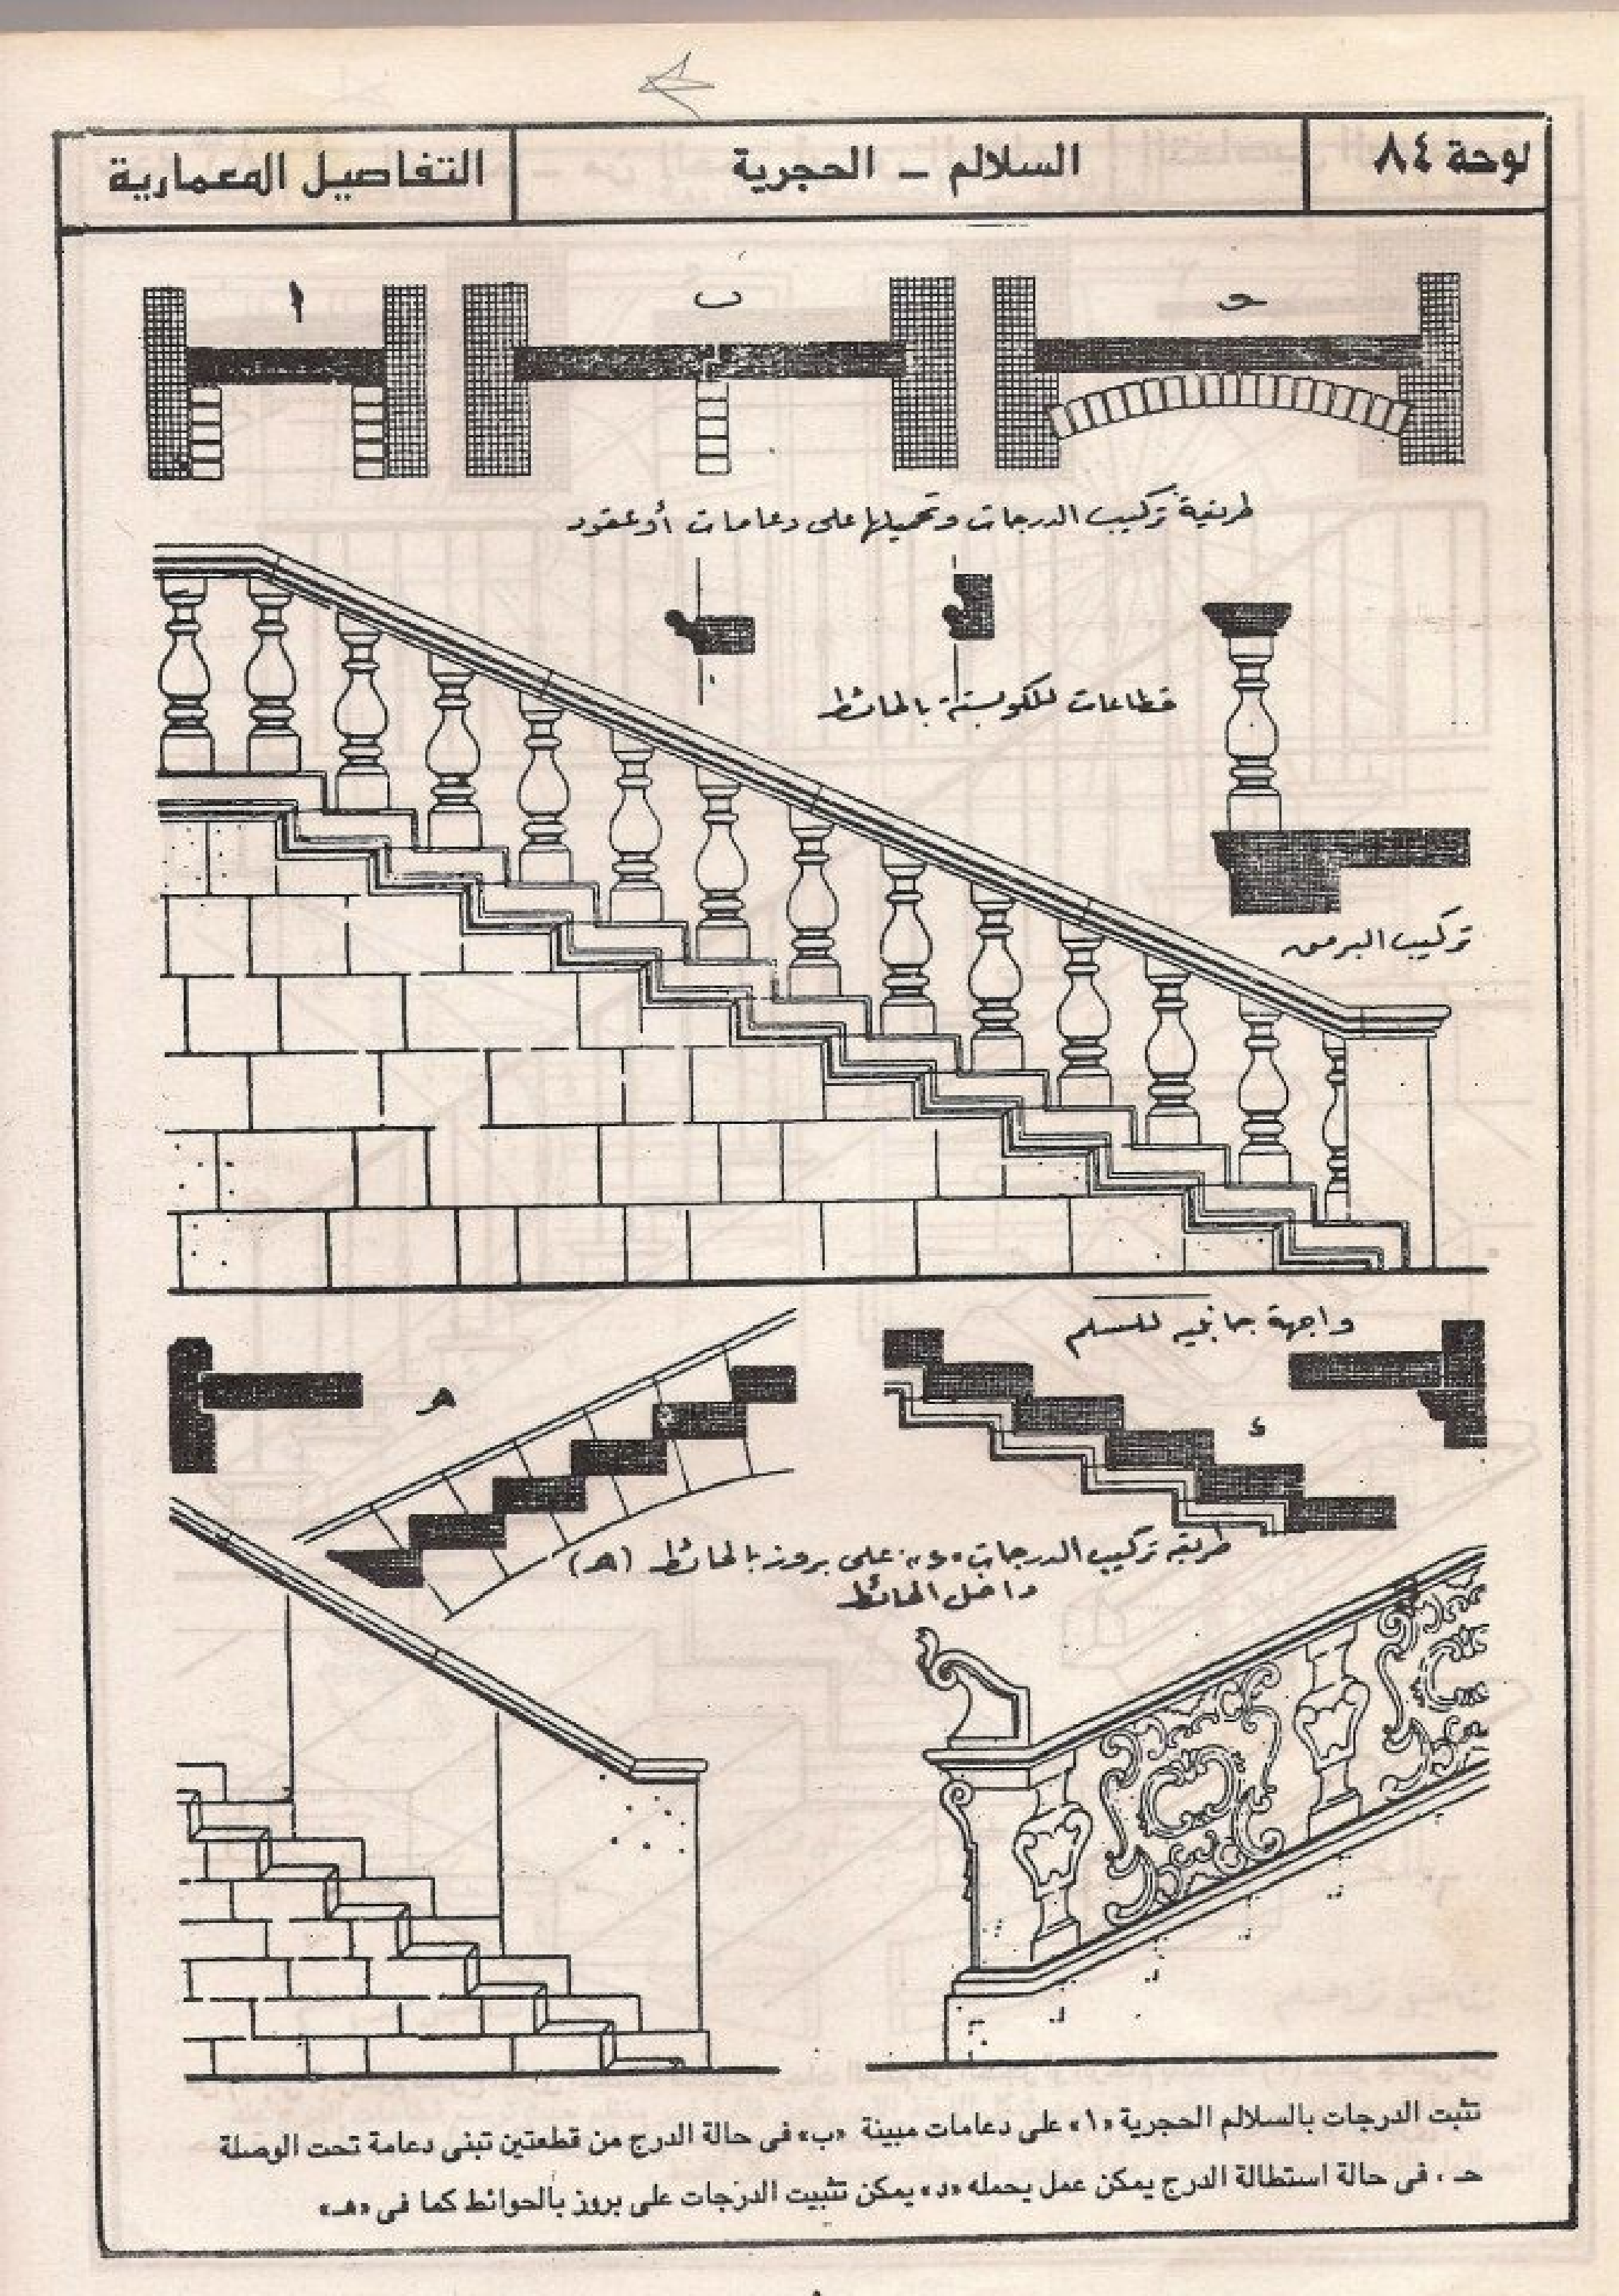 لوحة ٨٤
السلالم – الحجرية
التفاصيل المعمارية
ا
ب
حـ
طريقة تركيب الدرجات وتحميلها على دعامات أو عقود
قطاعات للكوبستة بالحائط
تركيب البرمق
واجهة جانبيه للسلم
هـ
د
طريقه تركيب الدرجات «د» على بروز بالحائط (هـ)
داخل الحائط
تثبت الدرجات بالسلالم الحجرية «١» على دعامات مبينة «ب» فى حالة الدرج من قطعتين تبنى دعامة تحت الوصلة
حـ ، فى حالة استطالة الدرج يمكن عمل يحمله «د» يمكن تثبيت الدرجات على بروز بالحوائط كما فى «هـ»